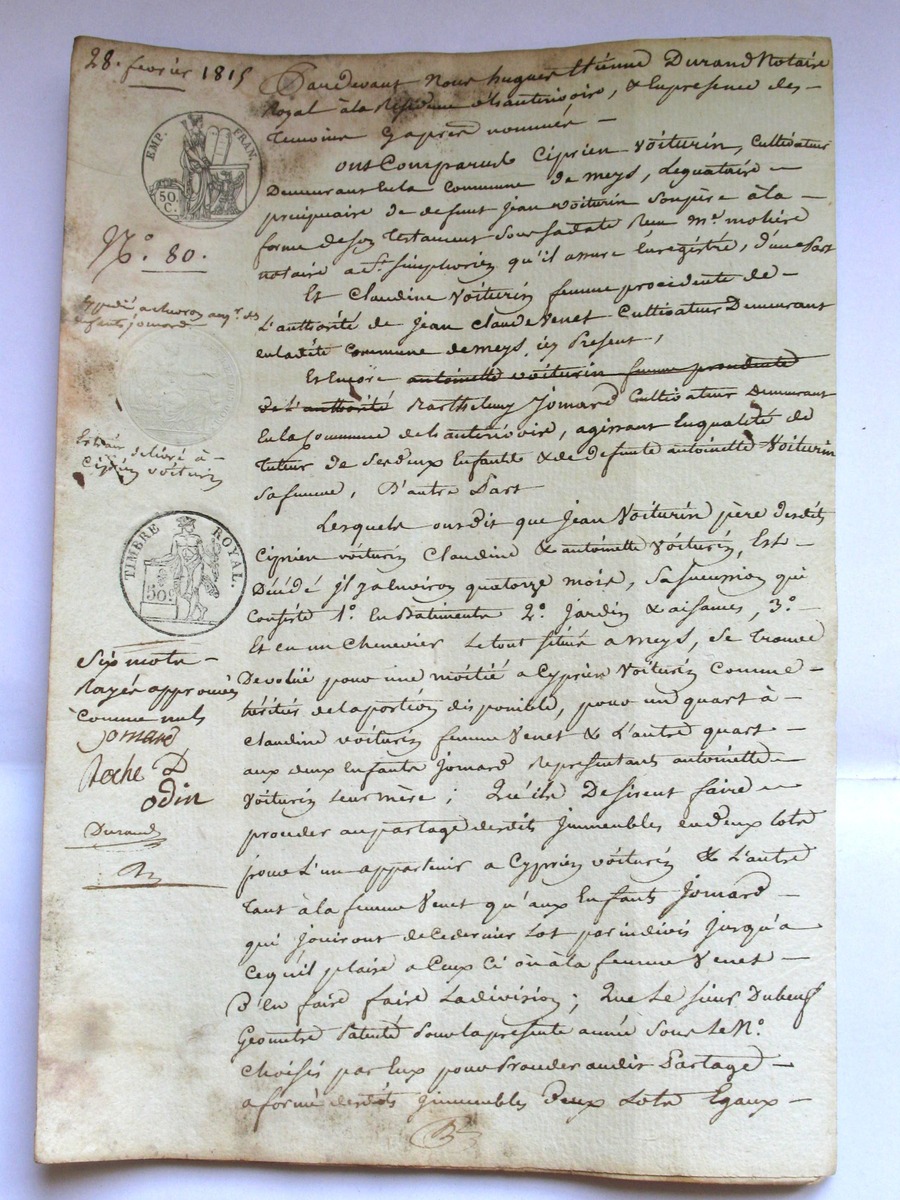 28. fevrier 1815
Pardevant Nous hugues Etienne Durand Notaire
Royal à la Residence de hauterivoire, & En presence des
Temoins Cy après nommés
ont Comparus Ciprien Voiturin, Cultivateur
Demeurant En la Commune de meys, Legataire
precipuaire de defunt jean voiturin son père à la
forme de son Testament sous sa date Reçu Me. molière
notaire a St. simphorien qu'il assure Enregistré, d'une Part
Et Claudine Voiturin femme procidente de
L'authorité de jean Claude Venet Cultivateur Demeurant
en ladite Commune de meys, ici Present,
Et Encore antoinette voiturin femme procidente
de L'authorité Barthelemy Jomard Cultivateur Demeurant
En la Commune de hauterivoire, agissant En qualité de
tuteur de ses deux Enfants & de defunte antoinette Voiturin
sa femme, D'autre Part
Lesquels ont dit que Jean Voiturin père desdits
Ciprien voiturin Claudine & antoinette Voiturin, Est
Décédé il y a Environ quatorze mois, sa succession qui
Consiste 1°. En Batiments 2°. jardin & aisances, 3°.
Et en un Chenevier Le tout situé a Meys, se trouve
Devolue pour une moitié a Cyprien Voiturin Comme
héritier de la portion disponible, pour un quart à
Claudine voiturin femme Venet & L'autre quart
aux deux Enfants Jomard Representants antoinette
Voiturin Leur mère; Qu'ils Desirent faire
proceder au partage desdits Immeubles en deux lots
pour L'un appartenir a Cyprien voiturin & L'autre
tant à la femme Venet qu'aux Enfants Jomard
qui jouiront de ce dernier Lot par indivis jusqu'a
Ce qu'il plaise a Ceux Ci ou à la femme Venet
D'en faire faire La division; Que Le sieur Dubeuf
Geometre Patenté Pour la presente année sous Le N°.
Choisis par Eux pour Proceder audit Partage
a formé desdits Immeubles Deux Lots Egaux
EMP. FRAN.
50.
C.
N°. 80.
Expedié a
enfants jomard
Extrait délivré à
Ciprien voiturin
TIMBRE ROYAL.
50c
Six mots
Rayés approuvés
Comme nuls
Jomard
Roche D
Odin
Durand